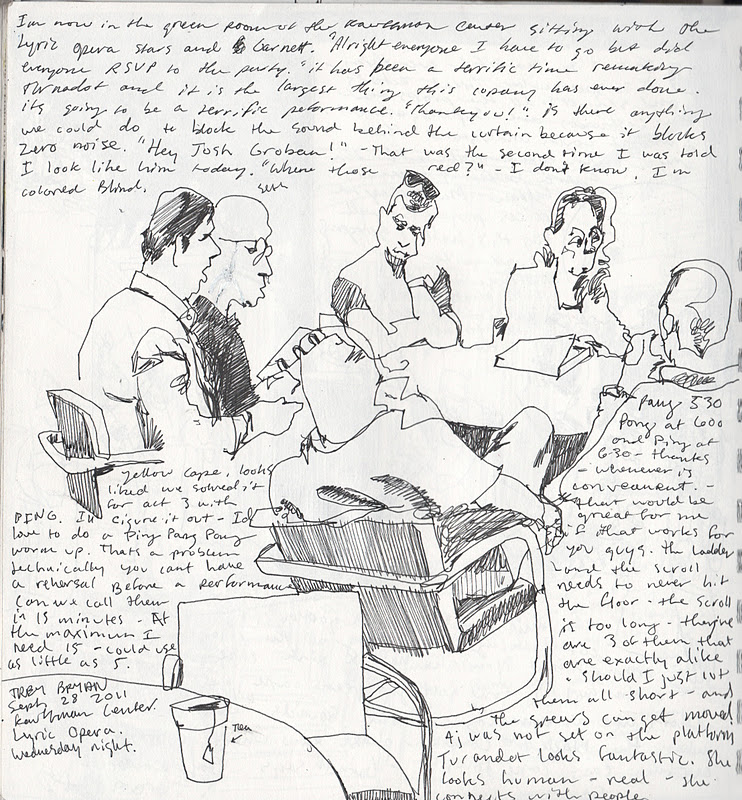 I'm now in the green room of the Kauffman Center sitting with the
Lyric Opera stars and Garnett. "Alright everyone I have to go but did
everyone RSVP to the party." it has been a terrific time remaking
Turnadot and it is the largest thing this company has ever done.
its going to be a terrific peformance. "Thankyou!" is there anything
we could do to block the sound behind the curtain because it blocks
Zero noise. "Hey Josh Groban!" - That was the second time I was told
I look like him today. "Where those red?" - I don't know, I'm
colored Blind.
Seth
yellow cape, looks
liked we solved it
for act 3 with
PING. I'll figure it out - I'd
love to do a Ping Pang Pong
warm up. Thats a problem
technically you cant have
a rehersal Before a performance
Can we call them
in 15 minutes - At
the maximum I
need 15 - could use
as little as 5.
TREY BRYAN
Sept 28 2011
Kauffman Center.
Lyric Opera.
Wednesday night.
Tea
Pang 530
Pong at 600
and Ping at
6:30 - thanks
- whenever is
convenient. -
that would be
great for me
if that works for
you guys. the ladder
and the scroll
needs to never hit
the floor - the scroll
is too long - theyre
are 3 of them that
are exactly alike
- Should I just cut
them all short - and
the spears can get moved
AJ was not set on the platform
Turandot looks fantastic. She
looks human - real - she
connects with people